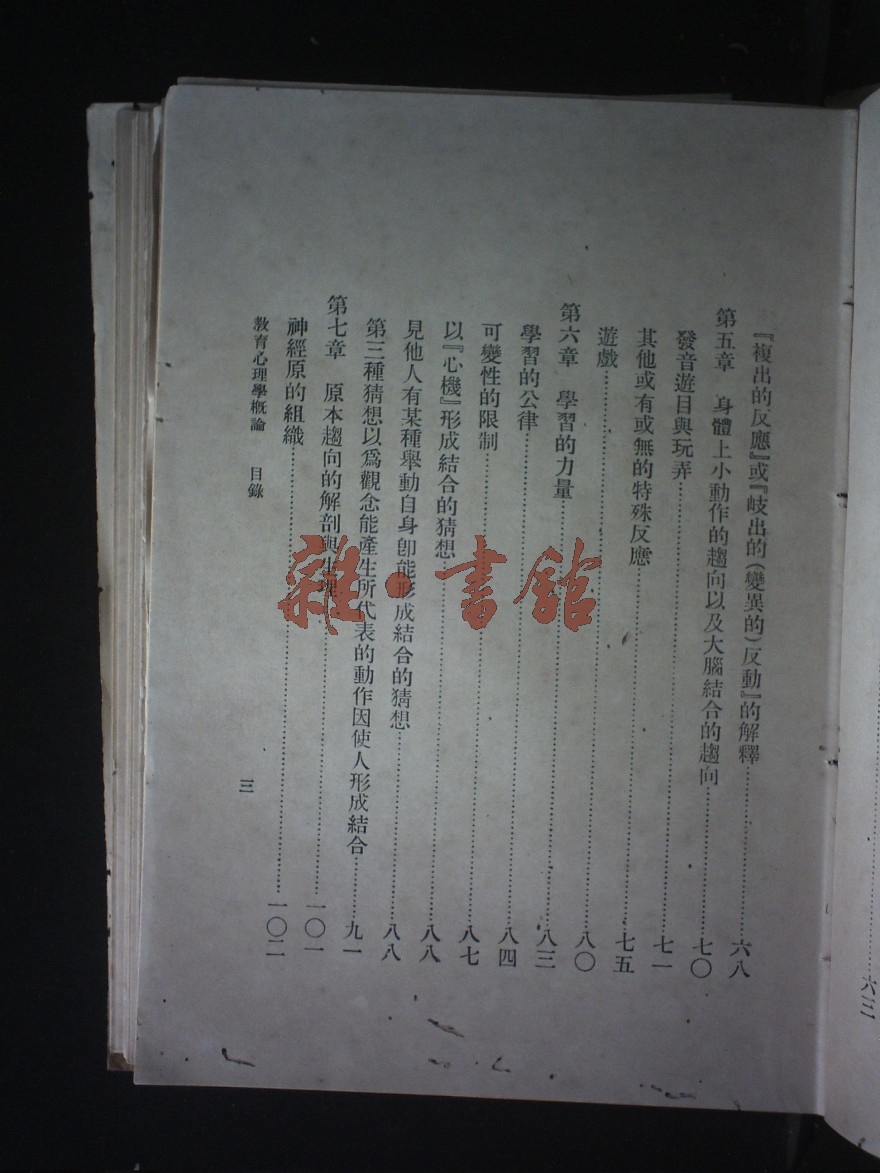 ……六三
『複出的反應』或『岐出的（變異的）反動』的解釋……六八
第五章　身體上小動作的趨向以及大腦結合的趨向……七〇
發音遊目與玩弄……七一
其他或有或無的特殊反應……七五
遊戲……八〇
第六章　學習的力量……八三
學習的公律……八四
可變性的限制……八七
以『心機』形成結合的猜想……八八
見他人有某種舉動自身卽能形成結合的猜想……八八
第三種猜想以爲觀念能產生所代表的動作因使人形成結合……九一
第七章　原本趨向的解剖與生理……一〇一
神經原的組織……一〇二
教育心理學概論　目錄　三
雜·書館